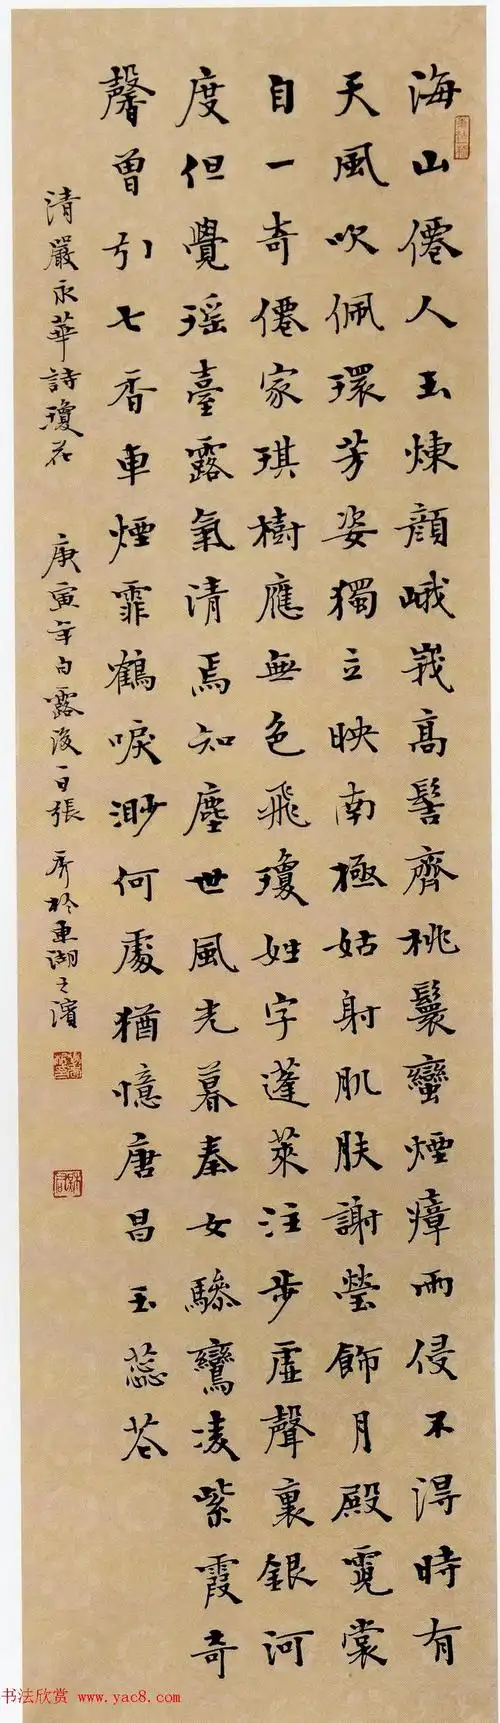 海山僊人玉煉顔峨峩髙髻齊桃鬟蠻煙瘴雨侵不淂時有
天風吹佩環芳姿獨立映南極姑射肌膚謝瑩飾月殿霓裳
自一奇僊家琪樹應無色飛瓊姓字蓬萊注步虛聲裏銀河
度但覺瑶臺露氣清焉知塵世風光暮秦女驂鸞凌紫霞奇
馨曽引七香車煙霏鶴唳渺何處猶憶唐昌玉蕊苍
清嚴永華詩瓊花 庚寅年白露後一日張 於東湖之濱
书法欣赏 www.yac8.com